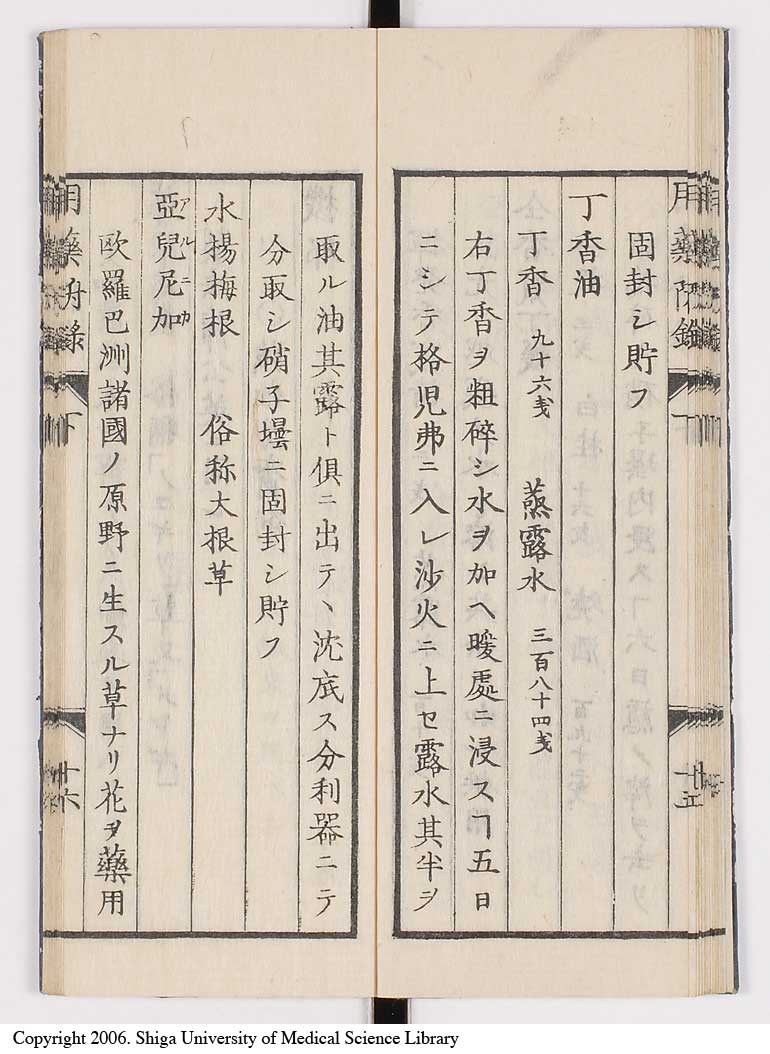 固封シ貯フ
丁香油
丁香 九十六戔 蒸露水 三百八十四戔
右丁香ヲ粗碎シ水ヲ加ヘ暖處ニ浸スヿ五日
ニシテ格児弗ニ入レ沙火ニ上セ露水其半ヲ
取ル油其露ト俱ニ出テヽ沈底ス分利器ニテ
分取シ硝子壜ニ固封シ貯フ
水揚梅根 俗称大根草
亞兒尼加 アルニカ
歐羅巴洲諸國ノ原野ニ生スル草ナリ花ヲ藥用
Copyright 2006. Shiga University of Medical Science Library